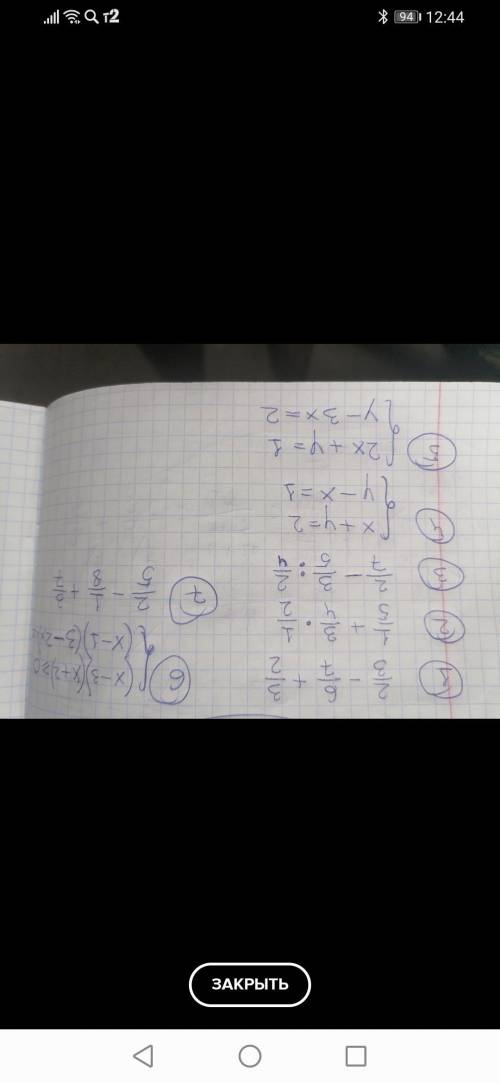 т2 94 12:44
① 2/3 - 6/7 + 3/2
② 1/5 + 3/4 · 1/2
③ 2/7 - 3/5 : 2/4
④ { x + y = 2
y - x = 1
⑤ { 2x + y = 1
y - 3x = 2
⑥ { (x-3)(x+2)≥0
(x-1)(3-2x)
⑦ 2/5 - 1/8 + /7
ЗАКРЫТЬ